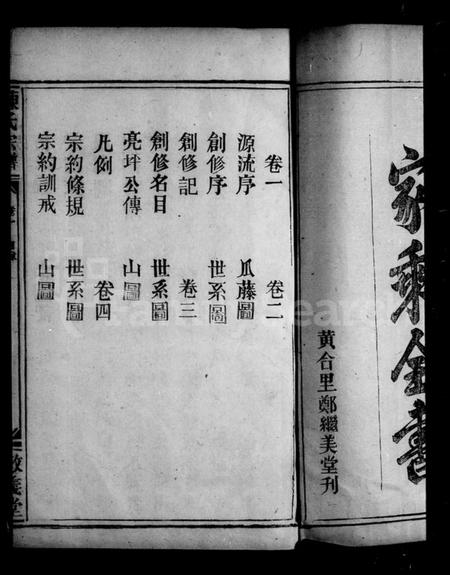 家乘全書
黃合里鄭繼美堂刊
卷一 卷二
源流序 瓜藤圖
創修序 世系圖
創修記 卷三
創修名目 世系圖
亮坪公傳 山圖
凡例 卷四
宗約條規 世系圖
宗約訓戒 山圖
陳氏宗譜
敦義堂